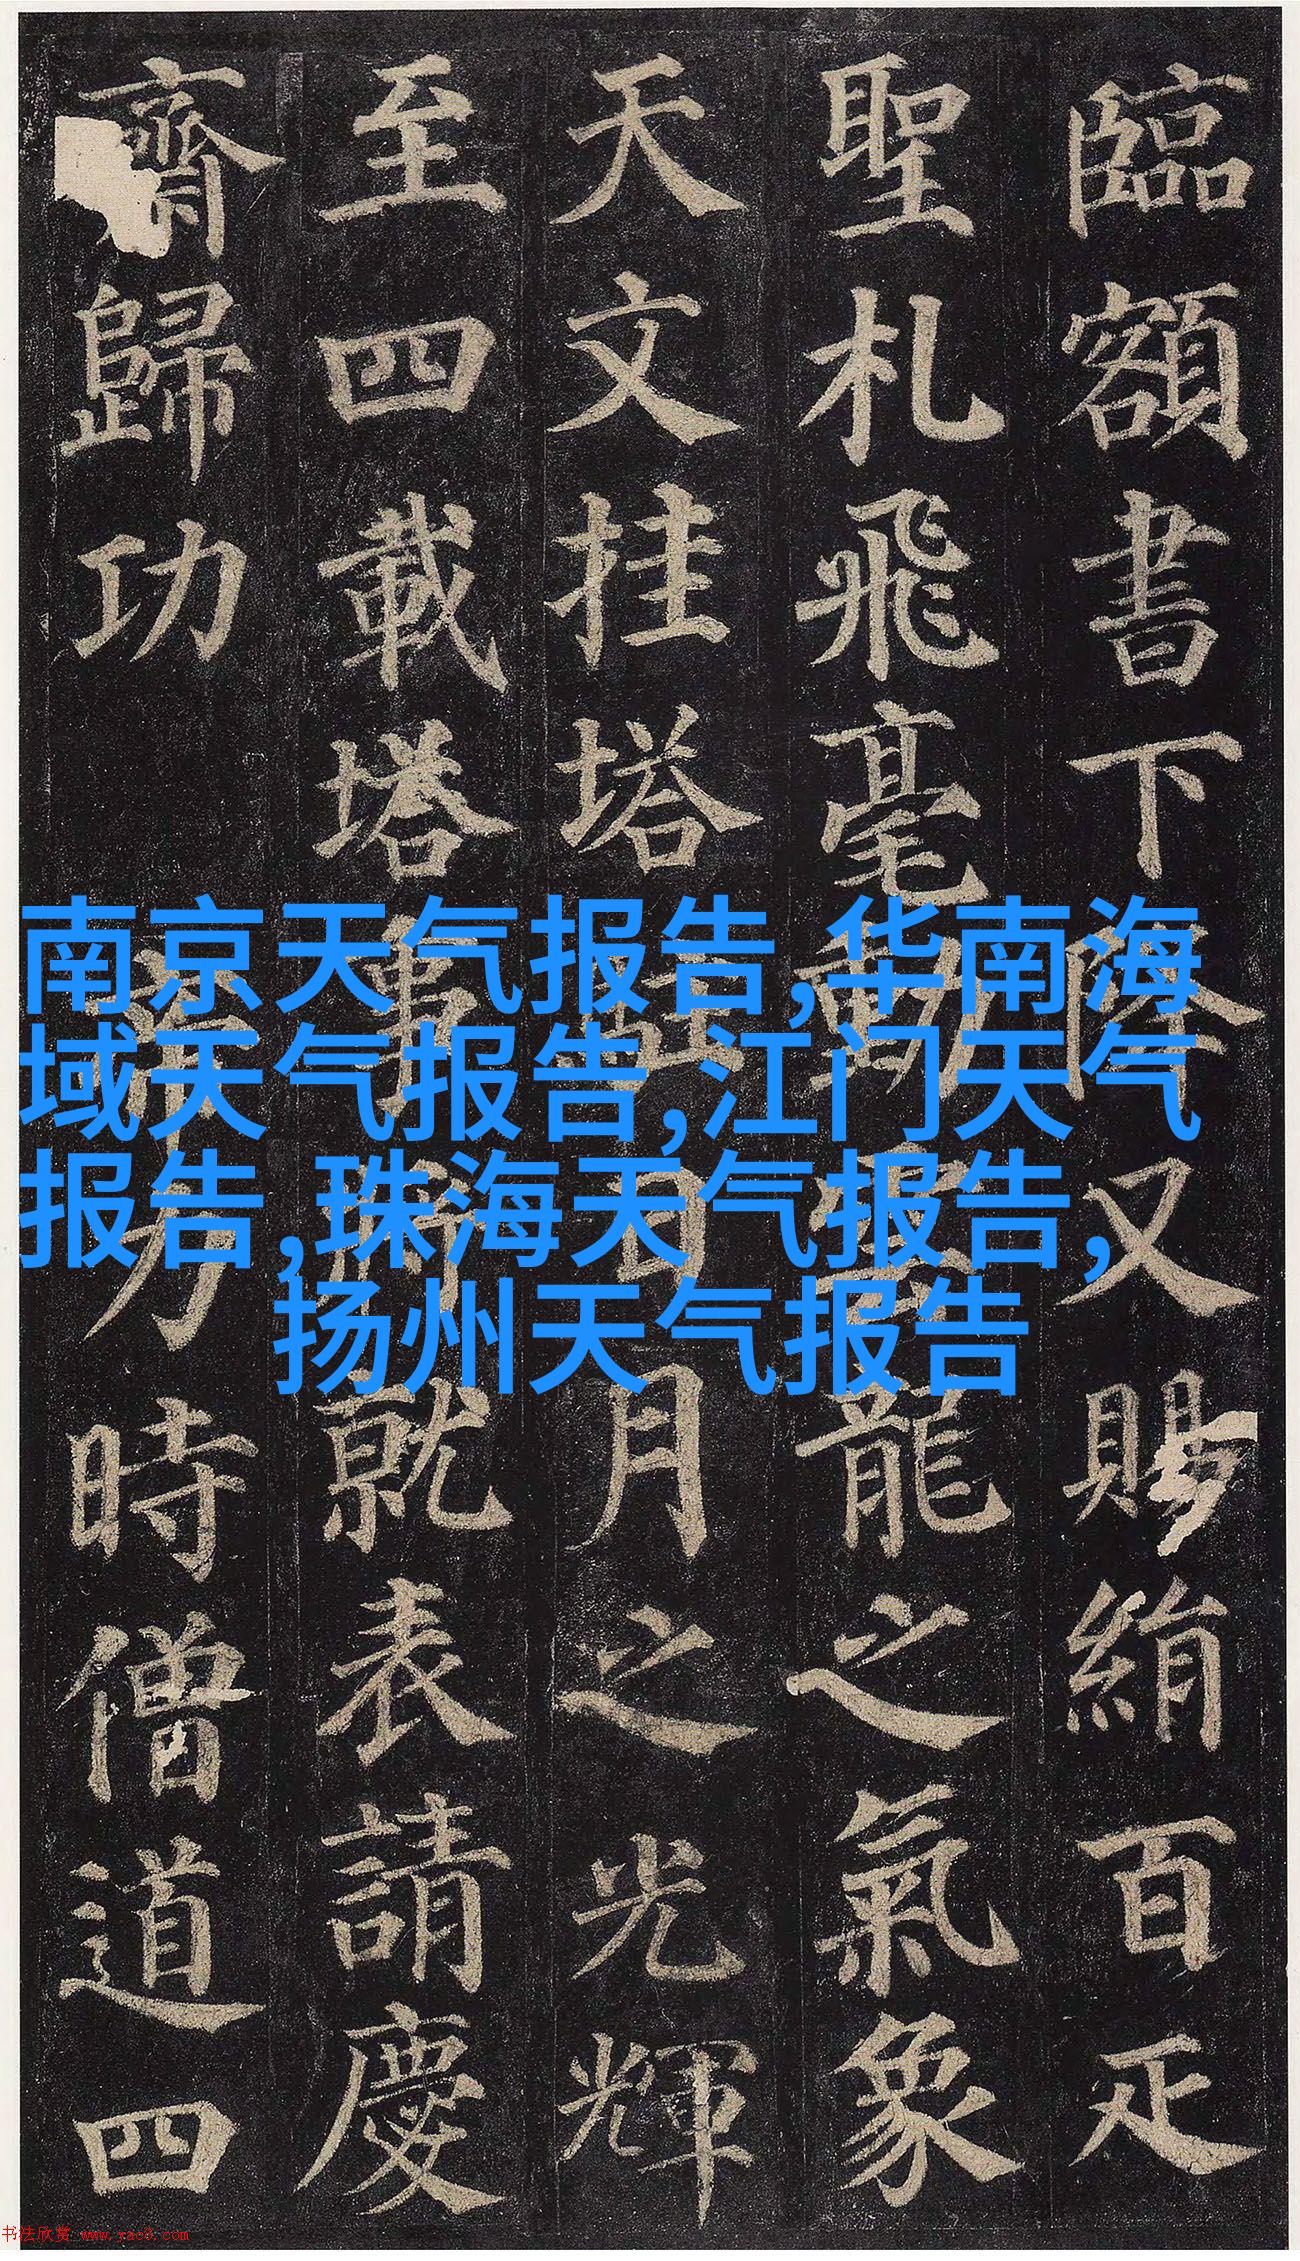 臨額書下降又賜絹百疋
聖札飛毫動雲龍之氣象
天文挂塔駐日月之光輝
至四載塔事將就表請慶
齋歸功帝力時僧道四
南京天气报告,华南海
域天气报告,江门天气
报告,珠海天气报告,
扬州天气报告
书法欣赏 www.yac8.com